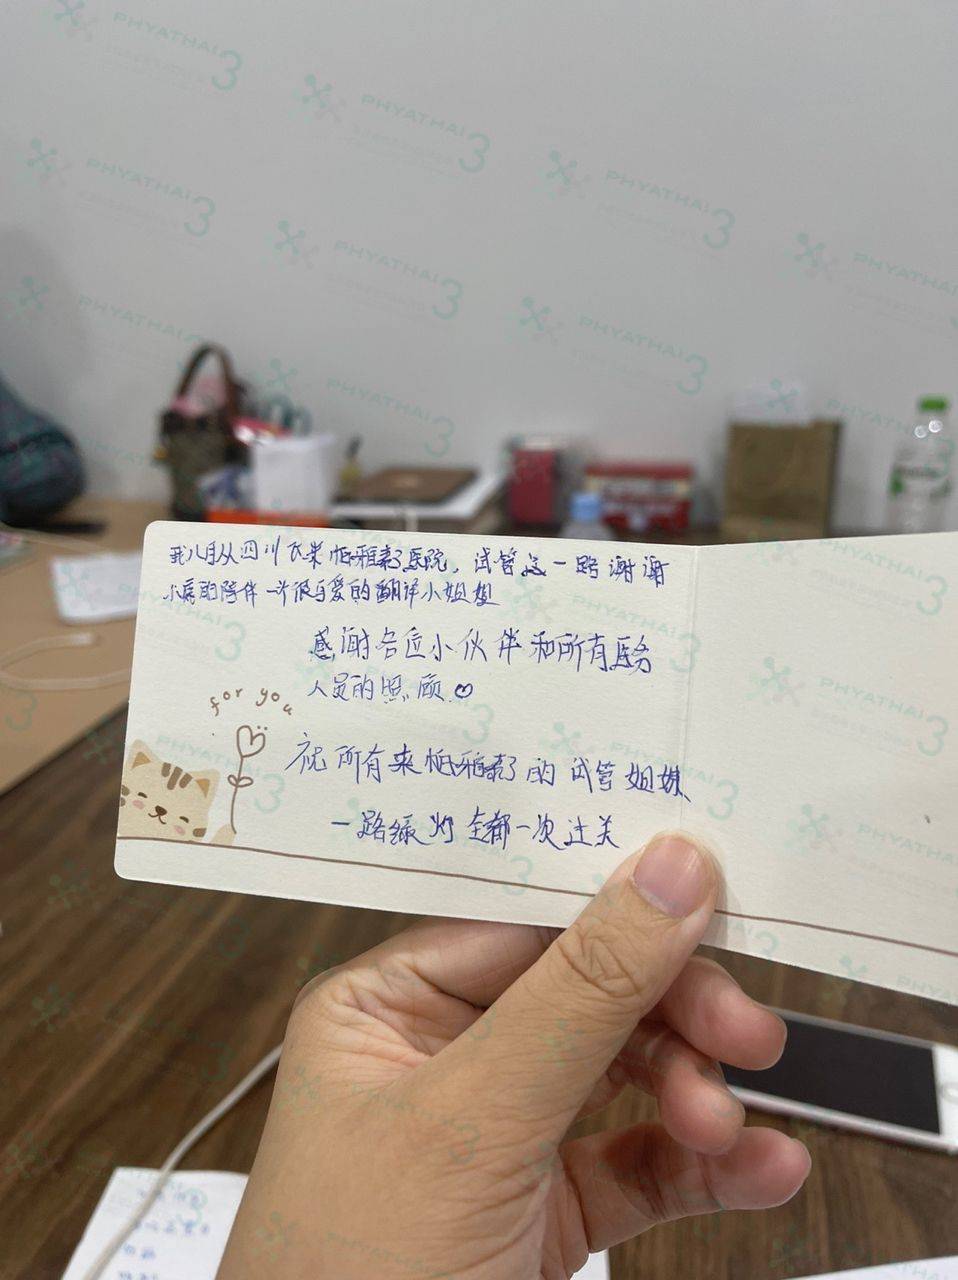 我八月从四川飞来帕雅泰3医院，试管这一路谢谢
小辰的陪伴 一个很可爱的翻译小姐姐
感谢各位小伙伴和所有医务
人员的照顾
for you
祝所有来帕雅泰3的试管姐妹
一路绿灯 全都一次过关
PHYATHAI 3